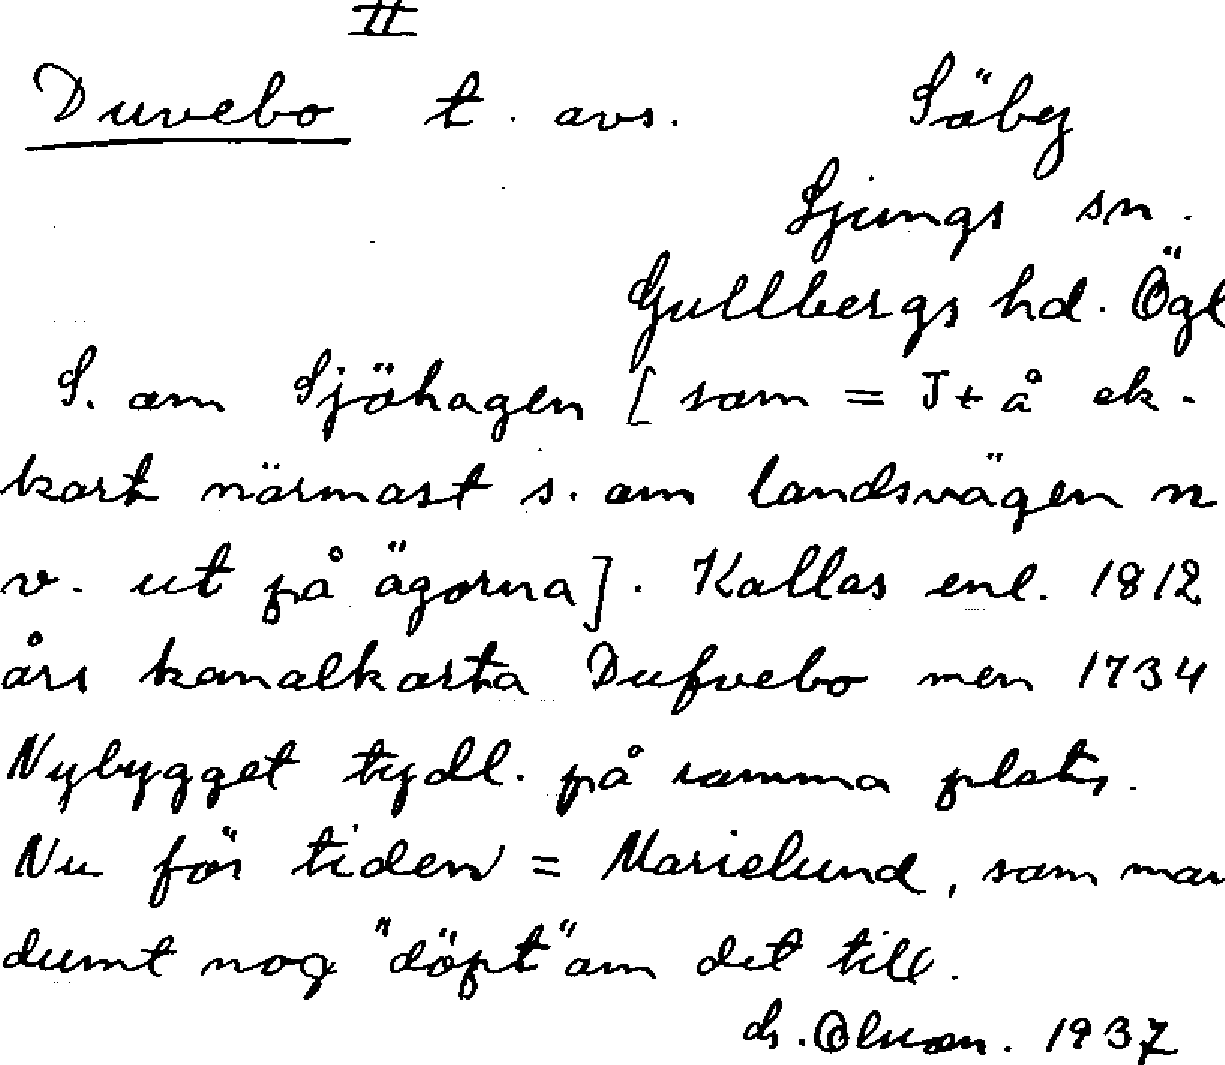 II
Duvebo t. avs. Säby
Ljungs sn.
Gullbergs hd. Ögl
S. om Sjöhagen [som = J+å ek-
kart närmast s. om landsvägen n
v. ut på ägorna]. Kallas enl. 1812
års kanalkarta Dufvebo men 1734
Nybygget tydl. på samma plats.
Nu för tiden = Marielund, som man
dumt nog "döpt" om det till.
1937